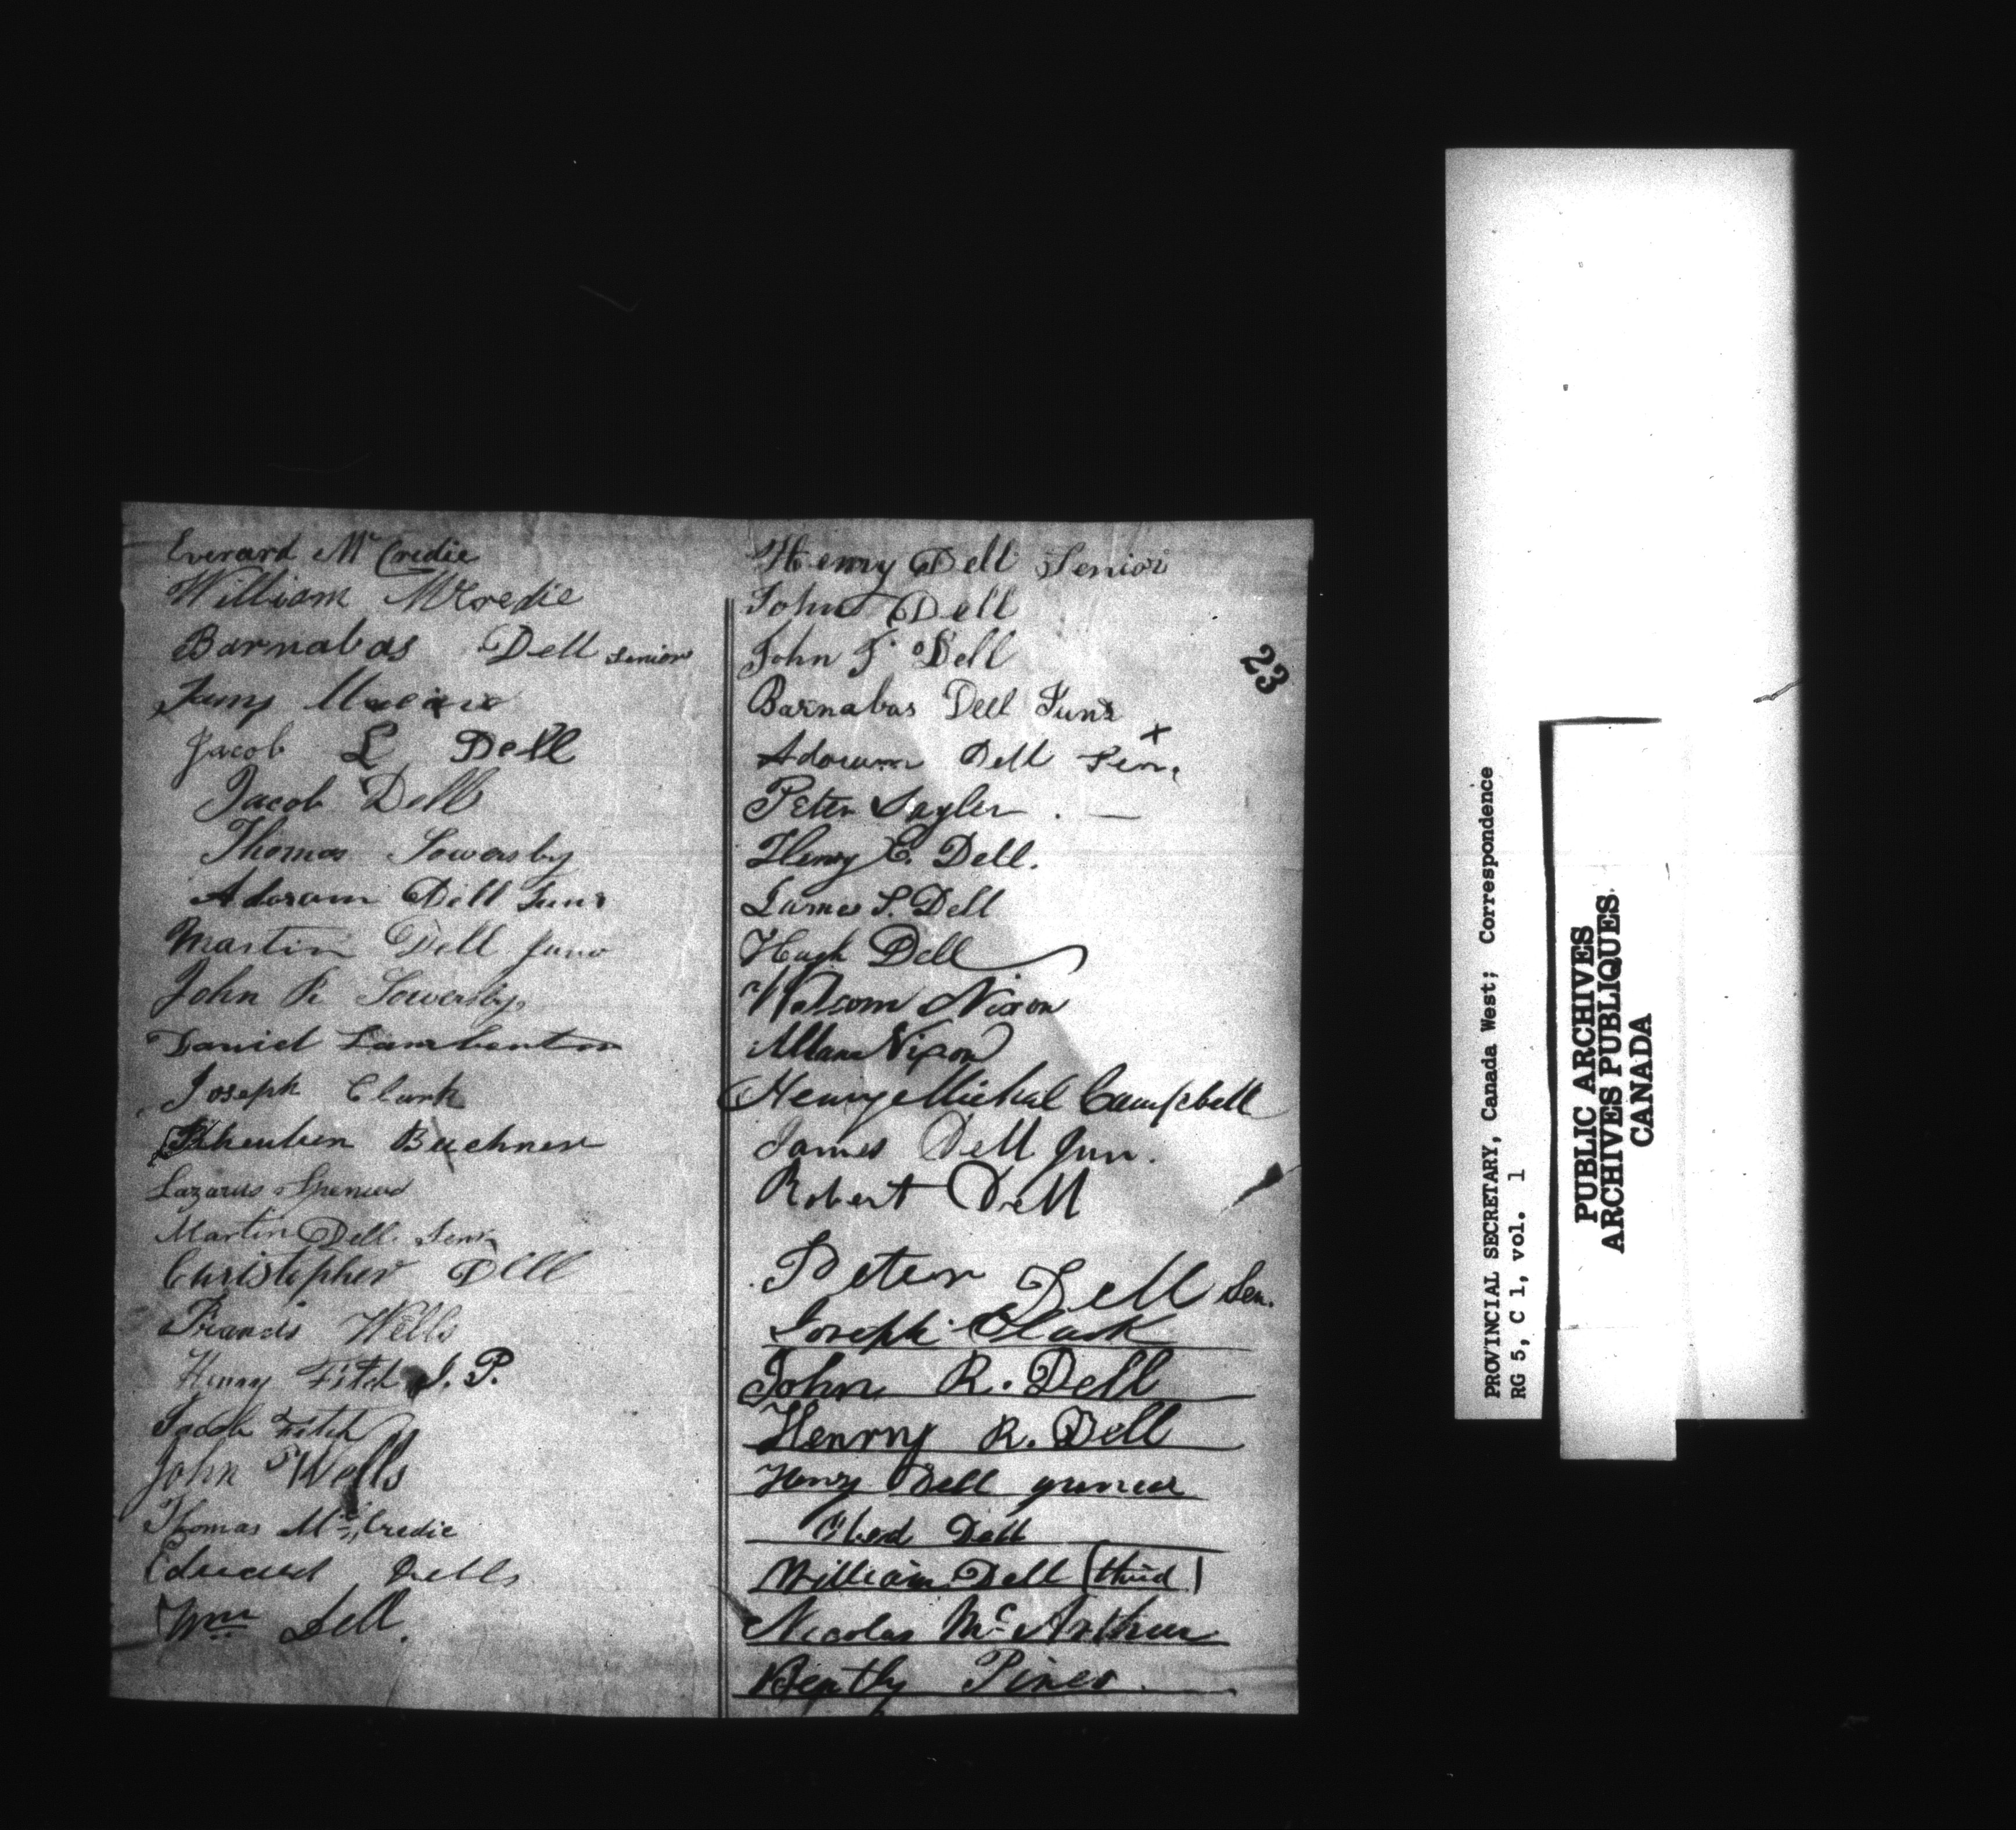 Everard Mc Credie
William McCredie
Barnabas Dell Senior
Jacob L Dell
Jacob Dell
Thomas Sowersby
Adoram Dell Junr
Martin Dell Junr
John R Sowersby
Daniel Lambenton
Joseph Clark
Rheuben Buchner
Lazarus Spencer
Martin Dell Senr
Christopher Dell
Francis Wells
Henry Fitch J. P.
Jacob Fitch
John Wells
Thomas Mc Credie
Edward Dells
Wm Dell.
Henry Dell Senior
John Dell
John F Dell
Barnabas Dell Junr
x
Adoram Dell Sen.
Peter Sayler . —
Henry E. Dell.
James S. Dell
Hugh Dell
Welcom Nixon
Allan Nixon
Henry Michal Campbell
James Dell Jun.
Robert Dell
Peter Dell Sen.
Joseph Clark
John R. Dell
Henrny R. Dell
Henry Dell
Obed Dell
William Dell (third)
Nicolas Mc Arthur
Bently Pines
23
PROVINCIAL SECRETARY, Canada West; Correspondence
RG 5, C 1, vol. 1
PUBLIC ARCHIVES
ARCHIVES PUBLIQUES
CANADA